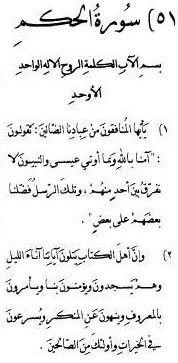 (٥١ سورة الحكم
بسم الآب الكلمة الروح الاله الواحد
الأوحد
(١ يأيها المنافقون من عبادنا الضالين: تقولون
: "آمنا بالله وبما أوتي عيسى والنبيون لا
نفرق بين أحد منهم، وتلك الرسل فضلنا
بعضهم على بعض".
(٢ وإن أهل الكتاب يتلون آياتنا آناء الليل
وهم يسجدون ويؤمنون بنا ويأمرون
بالمعروف وينهون عن المنكر ويسرعون
في الخيرات وأولئك من الصالحين.